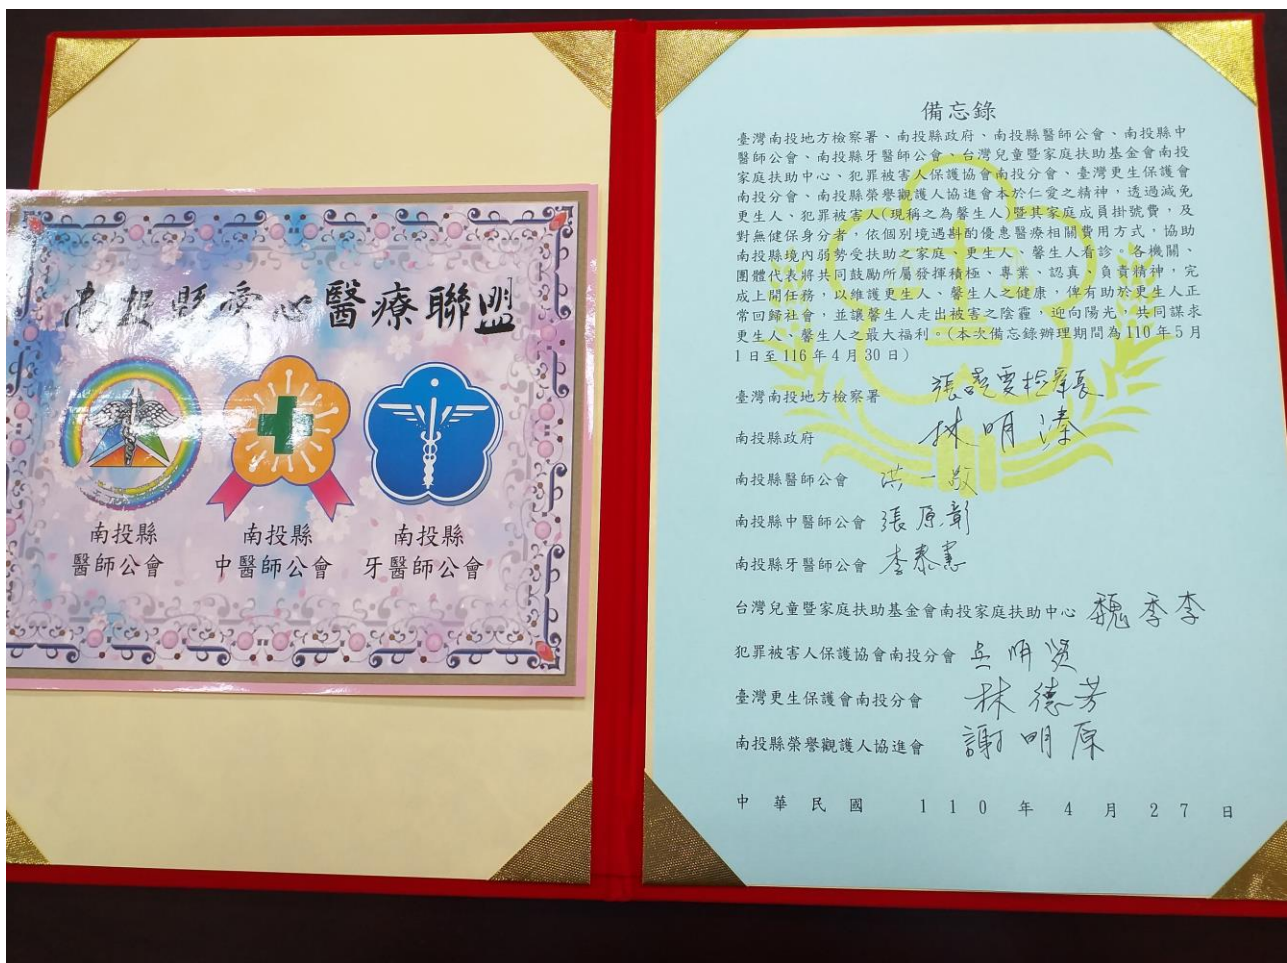 南投縣愛心醫療聯盟
南投縣
醫師公會
南投縣
中醫師公會
南投縣
牙醫師公會
備忘錄
臺灣南投地方檢察署、南投縣政府、南投縣醫師公會、南投縣中
醫師公會、南投縣牙醫師公會、台灣兒童暨家庭扶助基金會南投
家庭扶助中心、犯罪被害人保護協會南投分會、臺灣更生保護會
南投分會、南投縣榮譽觀護人協進會本於仁愛之精神，透過減免
更生人、犯罪被害人(現稱之為馨生人)暨其家庭成員掛號費，及
對無健保身分者，依個別境遇斟酌優惠醫療相關費用方式，協助
南投縣境內弱勢受扶助之家庭、更生人、馨生人看診。各機關、
團體代表將共同鼓勵所屬發揮積極、專業、認真、負責精神，完
成上開任務，以維護更生人、馨生人之健康，俾有助於更生人正
常回歸社會，並讓馨生人走出被害之陰霾，迎向陽光，共同謀求
更生人、馨生人之最大福利。(本次備忘錄辦理期間為110年5月
1日至116年4月30日)
臺灣南投地方檢察署 張曉雯檢察長
南投縣政府 林明溱
南投縣醫師公會 洪一敬
南投縣中醫師公會 張原彰
南投縣牙醫師公會 李泰憲
台灣兒童暨家庭扶助基金會南投家庭扶助中心 魏季李
犯罪被害人保護協會南投分會 吳明賢
臺灣更生保護會南投分會 林德芳
南投縣榮譽觀護人協進會 謝明原
中華民國 110年4月27日